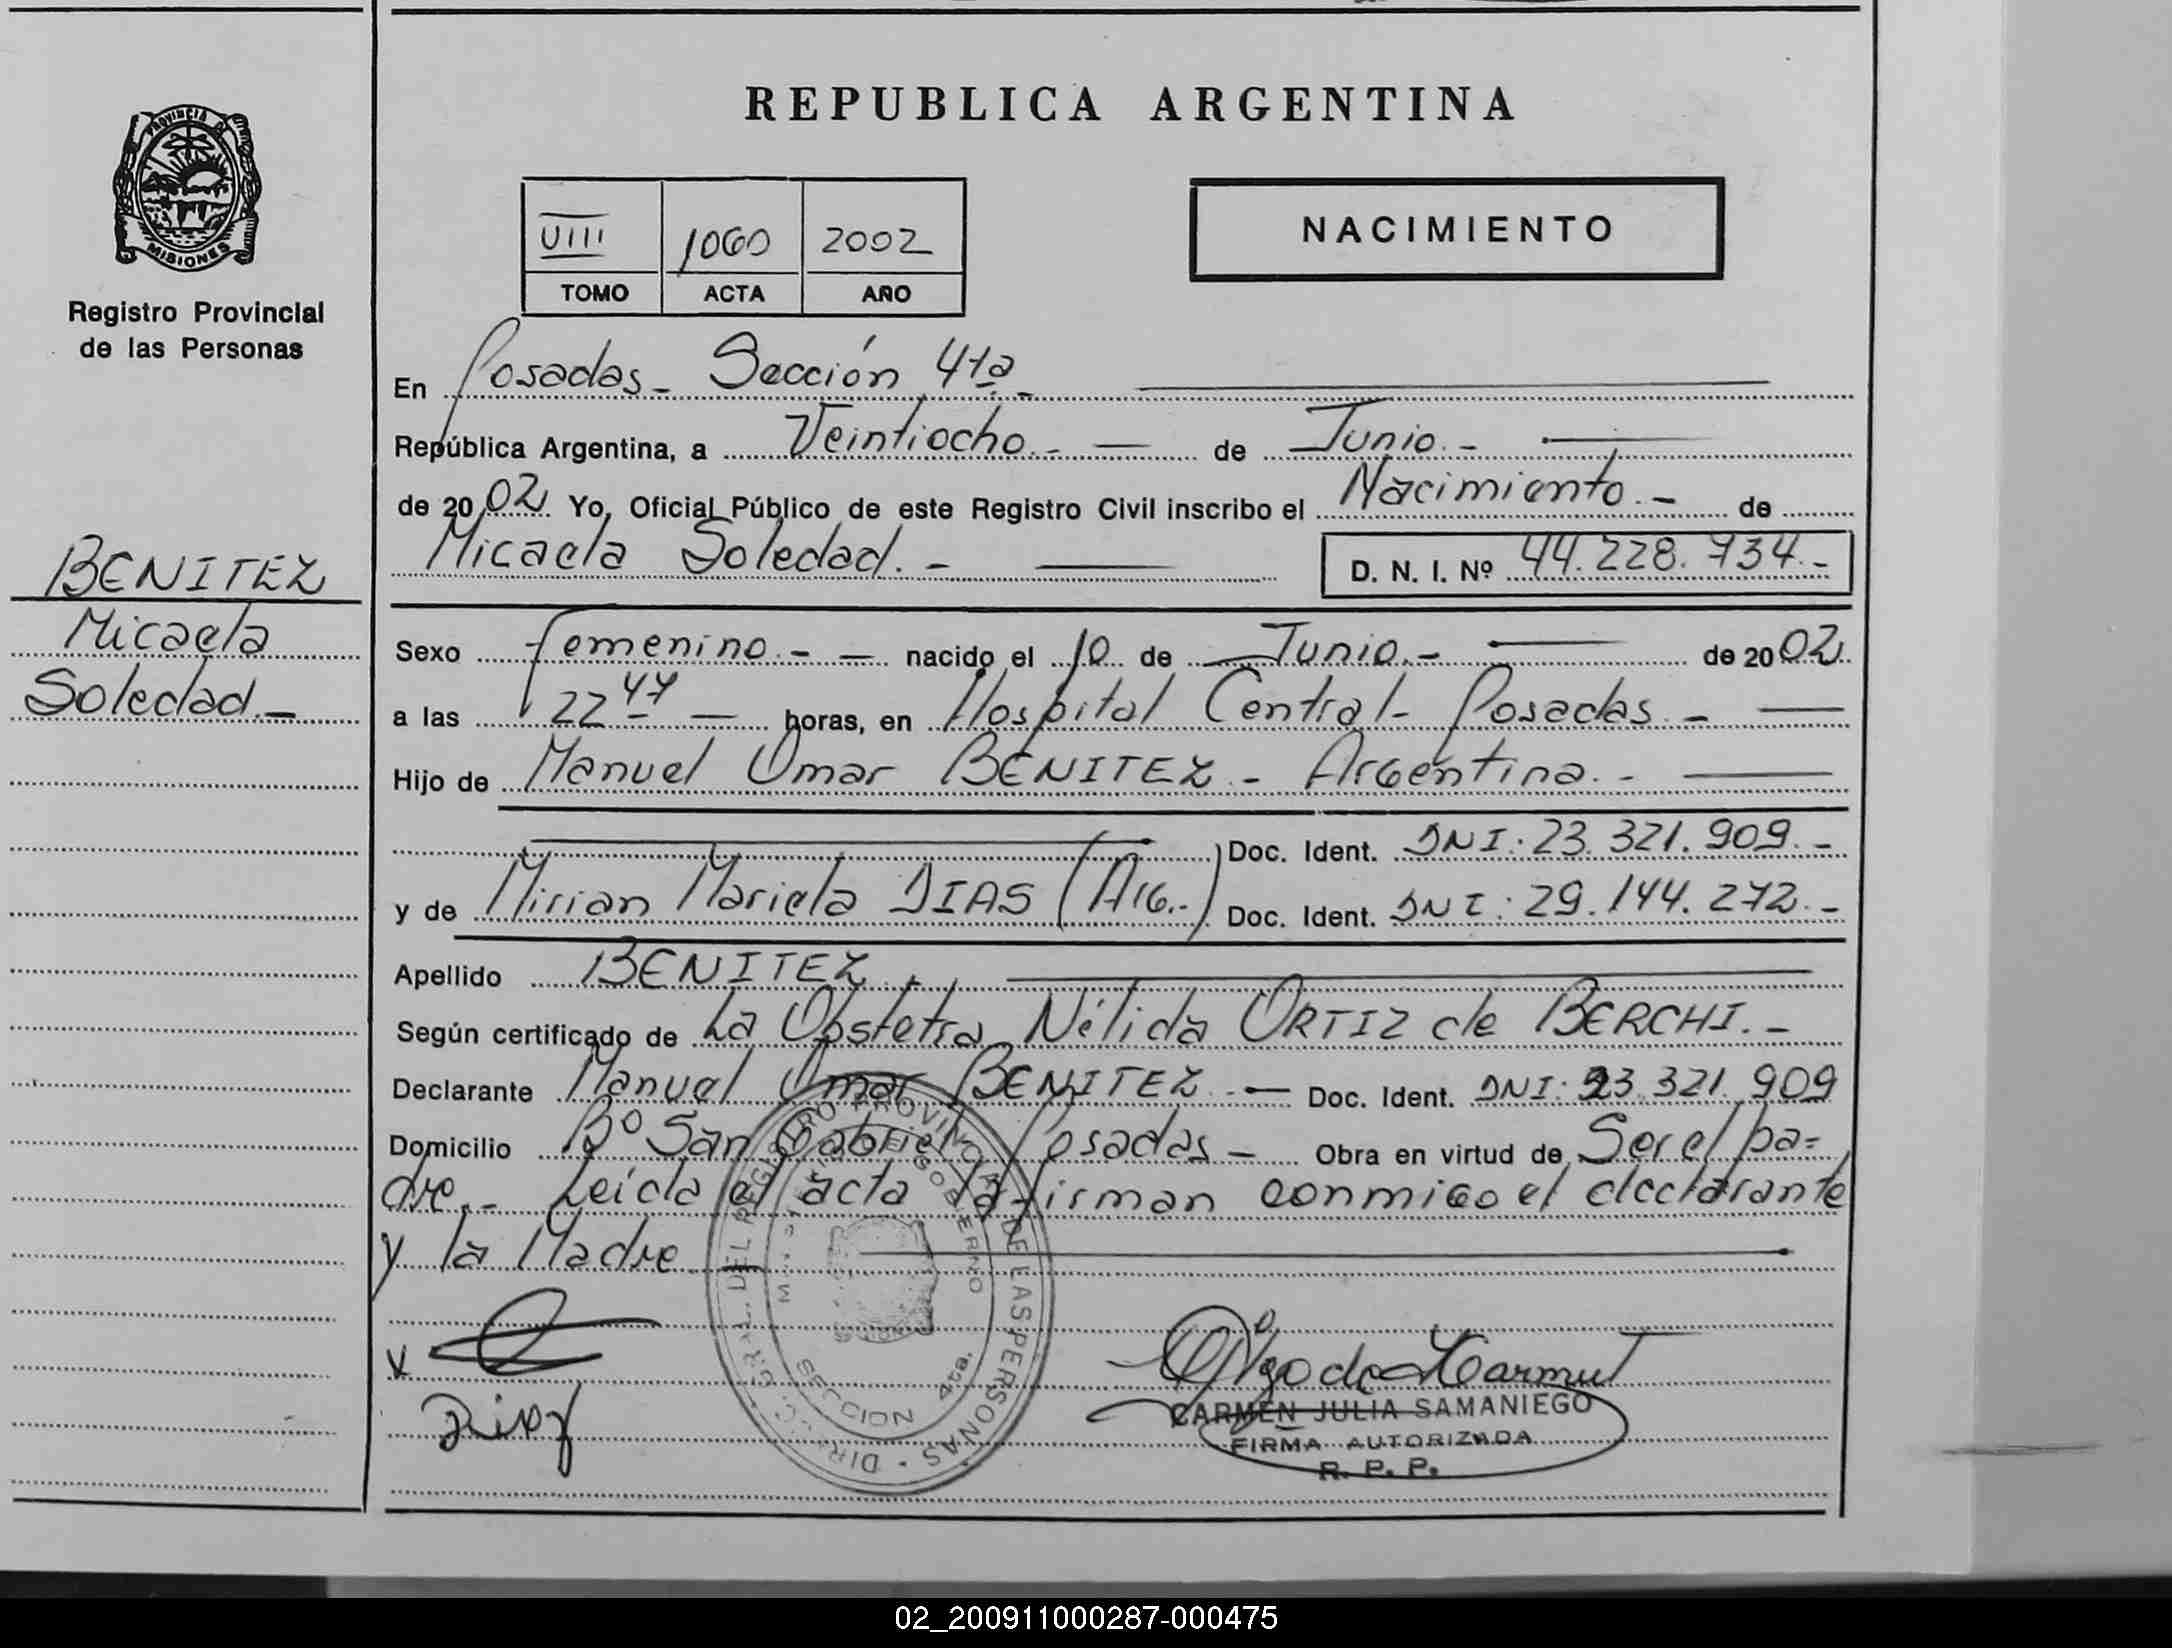 PROVINCIA DE
MISIONES
Registro Provincial
de las Personas
BENITEZ
Micaela
Soledad.-
REPUBLICA ARGENTINA
VIII 1060 2002
TOMO ACTA AÑO
NACIMIENTO
En Posadas - Sección 4ta.-
República Argentina, a Veintiocho.- de Junio.-
de 2002 Yo, Oficial Público de este Registro Civil inscribo el Nacimiento.- de
Micaela Soledad.- D. N. I. Nº 44.228.734.-
Sexo femenino.- nacido el 10 de Junio.- de 2002
a las 22 47 horas, en Hospital Central- Posadas.-
Hijo de Manuel Omar BENITEZ.- Argentina.-
Doc. Ident. DNI: 23.321.909.-
y de Mirian Mariela DIAS (Arg.-) Doc. Ident. DNI: 29.144.272.-
Apellido BENITEZ.
Según certificado de La Obstetra Nélida ORTIZ de BERCHI.-
Declarante Manuel Omar BENITEZ.- Doc. Ident. DNI: 23.321.909
Domicilio Bº San Gabriel Posadas - Obra en virtud de Ser el pa=
dre.- Leída el acta la firman conmigo el declarante
y la Madre
DIRECC. GRAL. DEL REGISTRO PROVINCIAL DE LAS PERSONAS
MINISTERIO DE GOBIERNO
SECCION 4ta.
CARMEN JULIA SAMANIEGO
FIRMA AUTORIZADA
R. P. P.
02_200911000287-000475